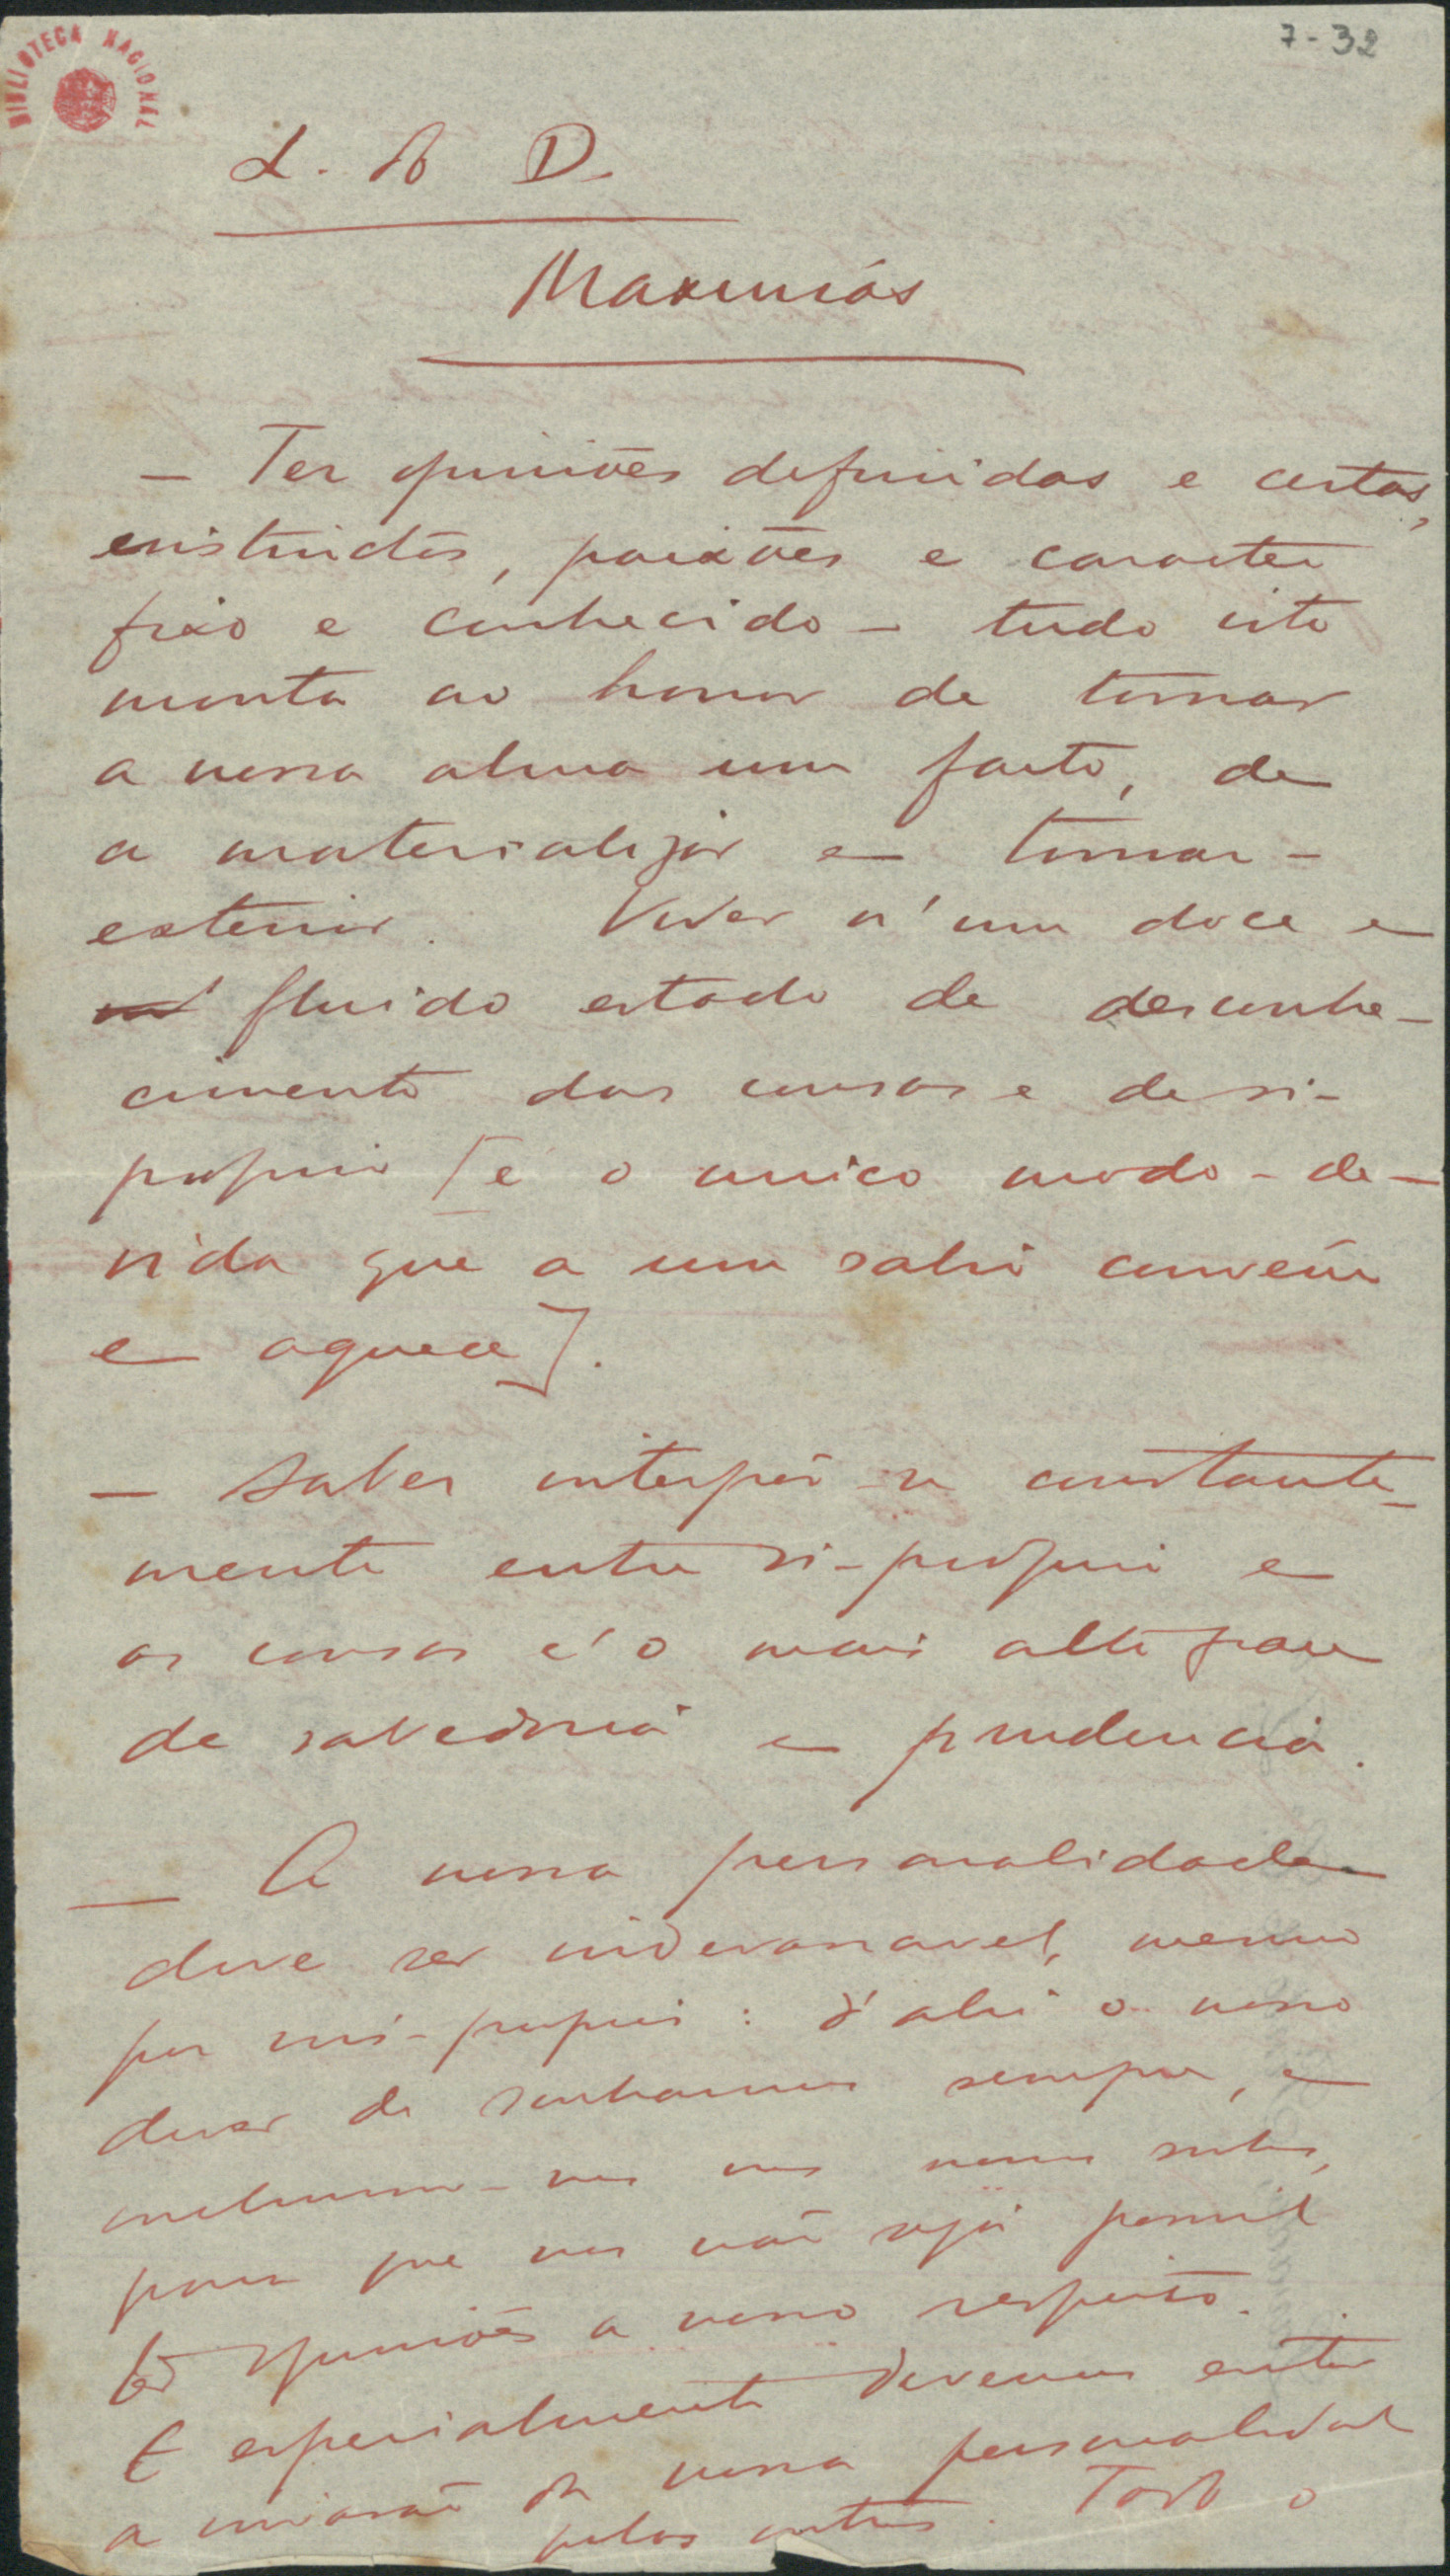 BIBLIOTECA NACIONAL
7-32
L. do D.
Maximas
— Ter opiniões definidas e certas,
instinctos, paixões e caracter
fixo e conhecido — tudo isto
monta ao horror de tornar
a nossa alma um facto, de
a materializar e tornar
exterior. Viver n'um doce e
fluido estado de desconhe-
cimento das cousas e de si-
proprio [é o unico modo-de-
vida que a um sabio convém
e aquece].
— Saber interpôr-se constante-
mente entre si-proprio e
as cousas é o mais alto grau
de sabedoria e prudencia.
— A nossa personalidade
deve ser indevassavel, mesmo
por nós-proprios: d'ahi o nosso
dever de sonharmos sempre, e
incluirmo-nos nos nossos sonhos,
para que nos não seja possivel
ter opiniões a nosso respeito.
E especialmente devemos evitar
a invasão da nossa personalidade
pelos outros. Todo o